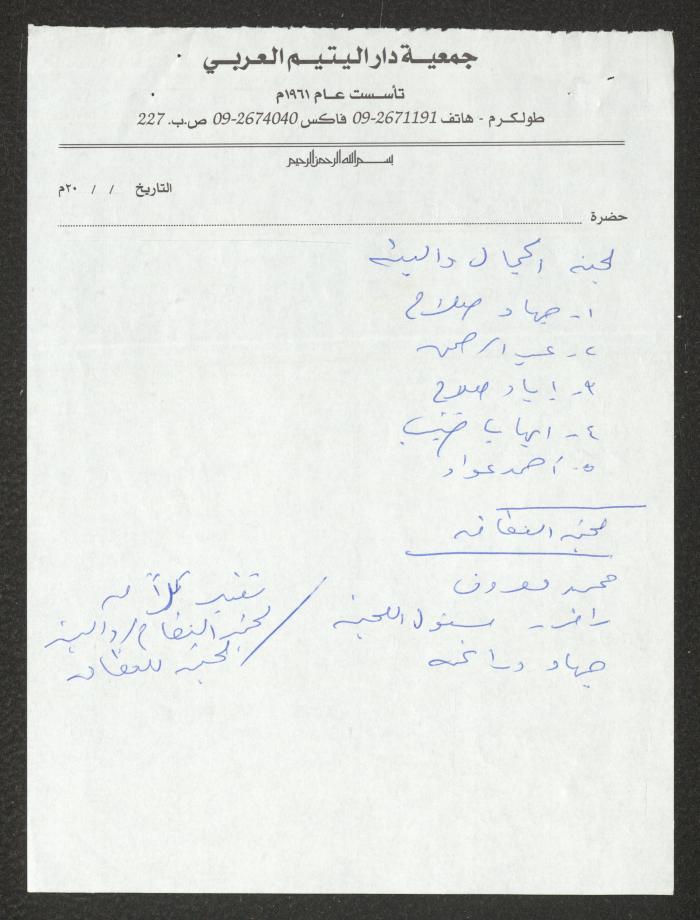 جمعية دار اليتيم العربي
تأسست عام ١٩٦١م
طولكرم - هاتف 2671191-09 فاكس 2674040-09 ص.ب. 227
بسم الله الرحمن الرحيم
التاريخ / / ٢٠م
حضرة
لجنة الجمال والبيئة
١- جهاد صلاح
٢- عبد الرحمن
٣- إياد صلاح
٤- ايهاب
٥- أحمد عواد
لجنة النظافة
محمد معروف
رائد - مسئول اللجنة
جهاد دراغمة
تغيير كلاً من
لجنة النظام والبيئة
لجنة للنظافة